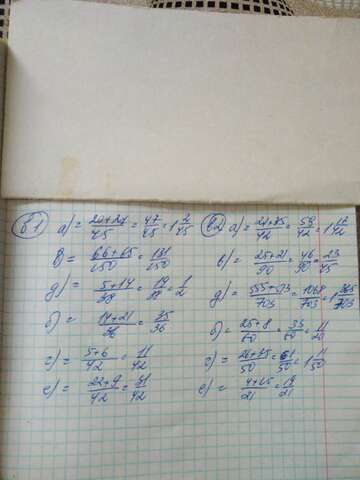 в1 а) = 20+27/45 = 47/45 = 1 2/45
в) = 66+65/150 = 131/150
д) = 5+14/38 = 19/38 = 1/2
б) = 14+21/36 = 35/36
г) = 5+6/42 = 11/42
е) = 22+9/42 = 31/42
в2 а) = 24+35/42 = 59/42 = 1 17/42
в) = 25+21/90 = 46/90 = 23/45
д) = 555+513/703 = 1068/703 = 1 365/703
б) = 25+8/60 = 33/60 = 11/20
г) = 26+35/50 = 61/50 = 1 11/50
е) = 4+15/21 = 19/21